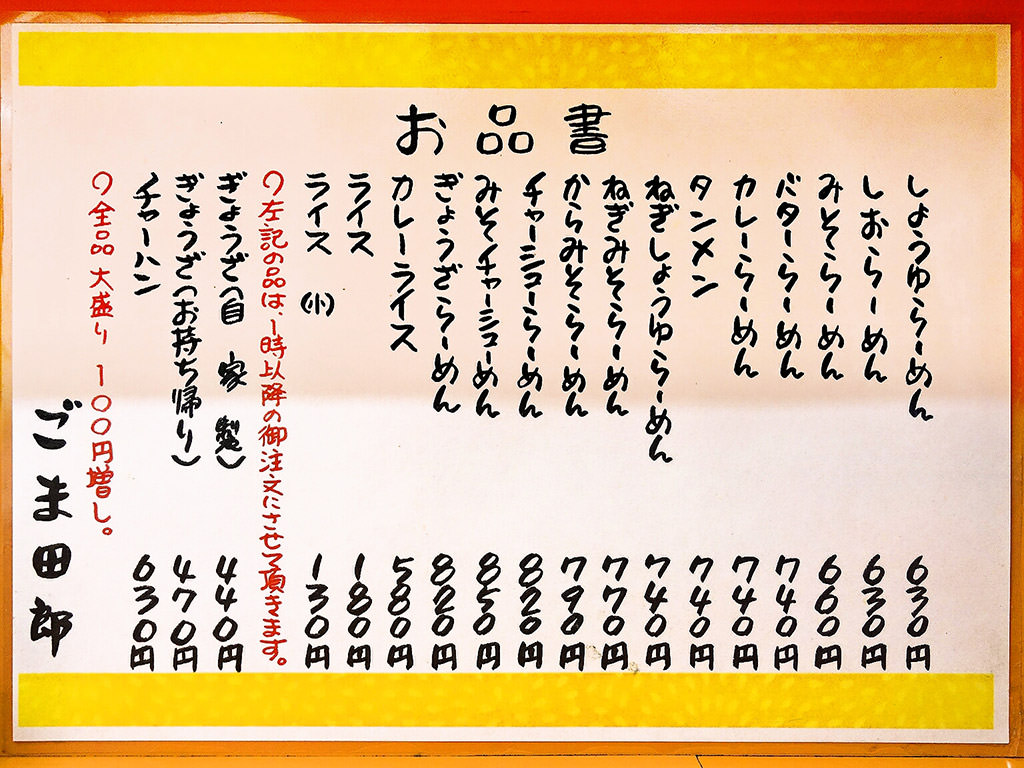 お品書
しょうゆらーめん 630円
しおらーめん 630円
みそらーめん 660円
バターらーめん 740円
カレーらーめん 740円
タンメン 740円
ねぎしょうゆらーめん 740円
ねぎみそらーめん 770円
からみそらーめん 790円
チャーシューらーめん 820円
みそチャーシューめん 850円
ぎょうざらーめん 820円
カレーライス 580円
ライス 180円
ライス (小) 130円
左記の品は、1時以降の御注文にさせて頂きます。
ぎょうざ(自家製) 440円
ぎょうざ(お持ち帰り) 470円
チャーハン 630円
全品大盛り 100円増し。
ごま田郎